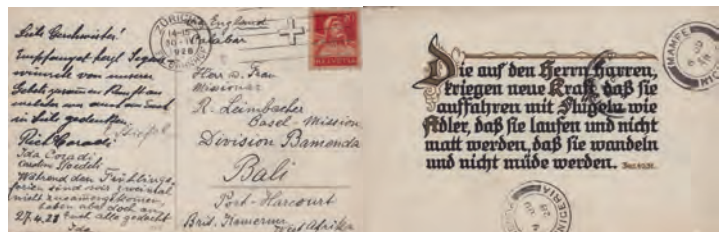 Liebe Geschwister!
Empfanget herzl. Segens
wünsche von unserer
Gebets
wir auch an Euch
in Liebe gedenken.
Rich Coradi
Ida Coradi
Während den Frühlings
ferien sind wir zweimal
nicht zusammengekommen,
haben aber doch an
27.4.28 Euch alle gedacht
Ida
ZÜRICH
1928
via England
Calabar
HELVETIA
Herr u. Frau
Missionar
R. Leimbacher
Basel-Mission
Division Bamenda
Bali
Port-Harcourt
Brit. Kamerun
West Afrika
Die auf den Herrn harren,
kriegen neue Kraft, daß sie
auffahren mit Flügeln wie
Adler, daß sie laufen und nicht
matt werden, daß sie wandeln
und nicht müde werden.
MAMFE
NIGERIA